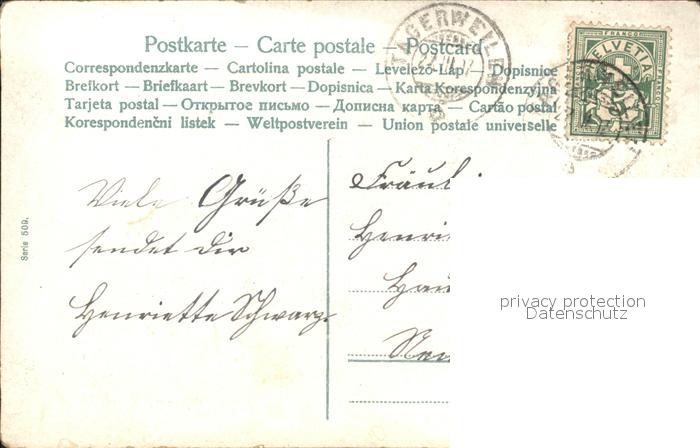 Postkarte – Carte postale – Postcard
Correspondenzkarte – Cartolina postale – Levelező-Lap – Dopisnice
Brefkort – Briefkaart – Brevkort – Dopisnica – Karta Korespondenzyjna
Tarjeta postal – Открытое письмо – Дописна карта – Cartão postal
Korespondenční listek – Weltpostverein – Union postale universelle
TÄGERWEILEN
FRANCO
HELVETIA
Serie 509.
Viele Grüße
sendet dir
Henriette Schwarz.
privacy protection
Datenschutz